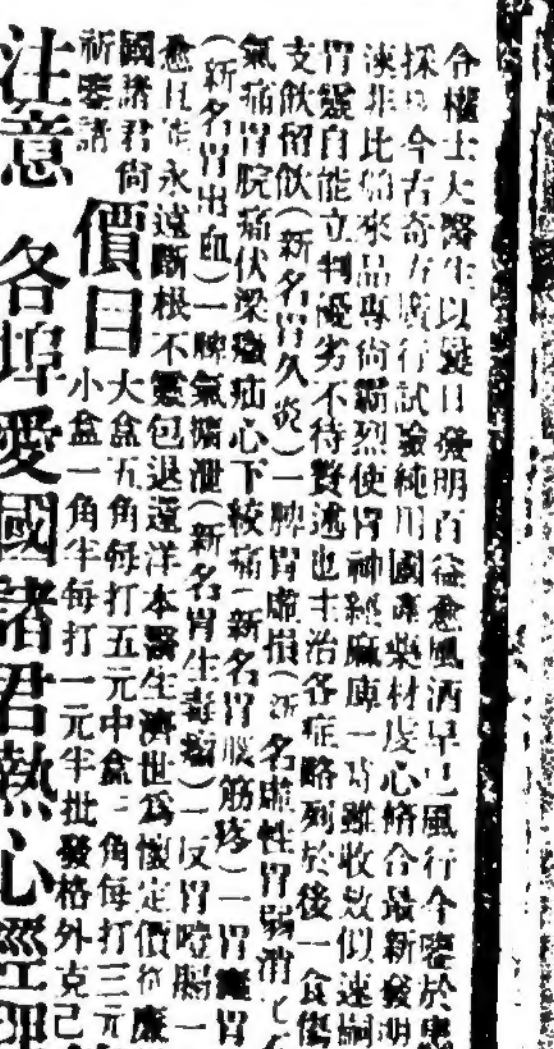 令權士大醫生以發明百益愈風酒早已風行今鑒於
採今古奇方試驗純用國產藥材虔心脩合最新發明
比舶來品專尚霸烈使胃神經麻痺一時雖收效似速
胃靈自能立判優劣不待贅述也主治各症略列於後一食傷
支飲留飲(新名胃久炎)一脾胃虛損(新名虛性胃弱消化
氣痛胃脘痛伏梁癥疝心下絞痛(新名胃腹筋疼)一胃癰胃
(新名胃出血)一脾氣擴泄(新名胃生毒瘤)一反胃噎膈一
愈且能永遠斷根不靈包退還洋本醫生濟世爲懷定價從廉
國諸君尚
祈鑒諸
價目
大盒五角每打五元中盒三角每打三元
小盒一角半每打一元半批發格外克己
注意 各埠愛國諸君熱心經理